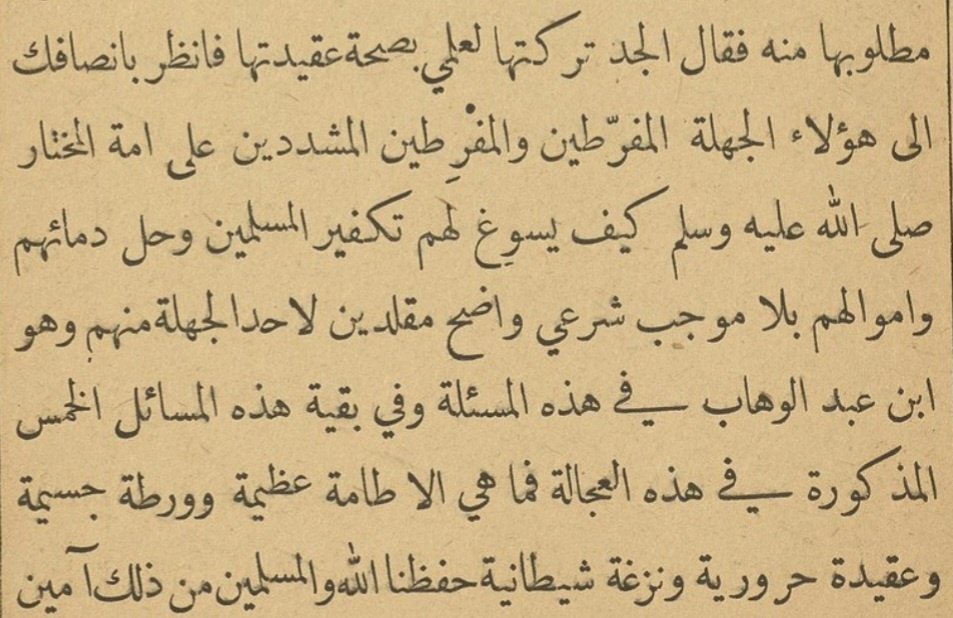 مطلوبها منه فقال الجد تركتها لعلمي بصحة عقيدتها فانظر بانصافك
الى هؤلاء الجهلة المفرّطين والمفْرِطين المشددين على امة المختار
صلى الله عليه وسلم كيف يسوغ لهم تكفير المسلمين وحل دمائهم
واموالهم بلا موجب شرعي واضح مقلدين لاحد الجهلة منهم وهو
ابن عبد الوهاب في هذه المسئلة وفي بقية هذه المسائل الخمس
المذكورة في هذه العجالة فما هي الا طامة عظيمة وورطة جسيمة
وعقيدة حرورية ونزغة شيطانية حفظنا الله والمسلمين من ذلك آمين